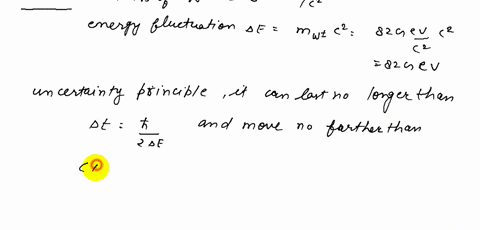 /c²
energy fluctuation ΔE = m_W± c² : 82 GeV/c² c²
= 82 GeV
uncertainty principle, it can last no longer than
Δt = ħ/2ΔE and move no farther than